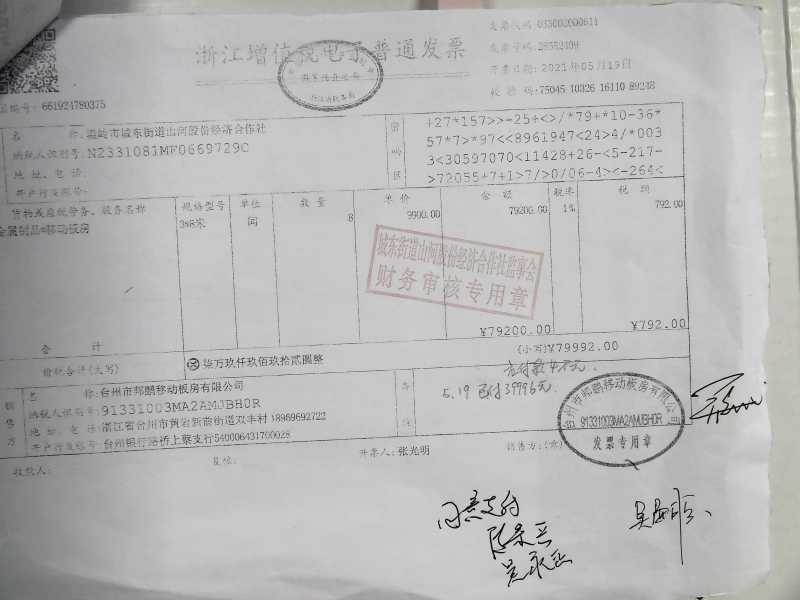 浙江增值税电子普通发票
发票代码：033002000611
发票号码：28552409
开票日期：2021年05月19日
校 验 码：75045 10326 16110 89248
661924780375
名 称：温岭市城东街道山河股份经济合作社
纳税人识别号：N2331081MF0669729C
地 址、电 话：
开户行及账号：
密码区
+27*157>>-25+<>/*79+*10-36*
57*7>*97<<8961947<24>4/*003
3<30597070<11428+26-<5-217-
>72055+7+1>7/>0/06-4><-264<
货物或应税劳务、服务名称 规格型号 单位 数量 单价 金额 税率 税额
金属制品*移动板房 3*6米 间 8 9900.00 79200.00 1% 792.00
城东街道山河股份经济合作社监事会
财务审核专用章
合 计 ¥79200.00 ¥792.00
价税合计(大写) 柒万玖仟玖佰玖拾贰圆整 (小写)¥79992.00
销售方
名 称：台州市邦鹏移动板房有限公司
纳税人识别号：91331003MA2AMJBH0R
地 址、电 话：浙江省台州市黄岩新前街道双丰村 18969692722
开户行及账号：台州银行路桥上蔡支行540006431700028
备注
5.19 已付39996元
台州市邦鹏移动板房有限公司
91331003MA2AMJBH0R
发票专用章
收款人：
复核：
开票人：张光明
销售方：(章)
同意支付